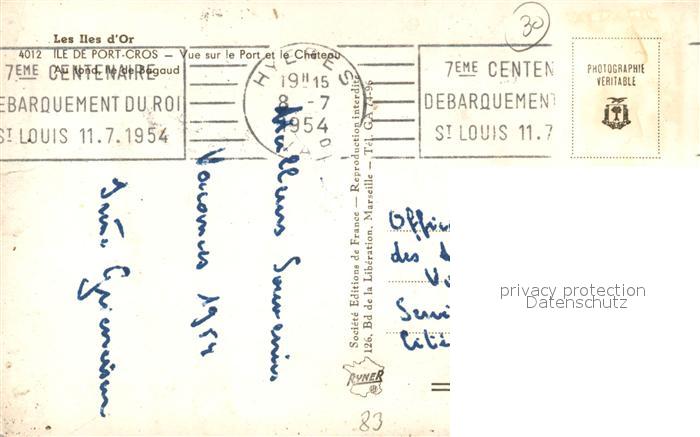 Les Iles d'Or
4012 ILE DE PORT-CROS — Vue sur le Port et le Château
Au fond, Ile de Bagaud
7EME CENTENAIRE
EBARQUEMENT DU ROI
ST LOUIS 11.7.1954
HYERES
19H15
8 -7
1954
VAR
7EME CENTEN
DEBARQUEMENT
ST LOUIS 11.7
PHOTOGRAPHIE
VÉRITABLE
30
Meilleurs Souvenirs
Vacances 1954
Société Editions de France — Reproduction interdite
126, Bd de la Libération, Marseille — Tél. GA 74-96
RYNER
Offic
des
V
Servi
Cité
privacy protection
Datenschutz
83